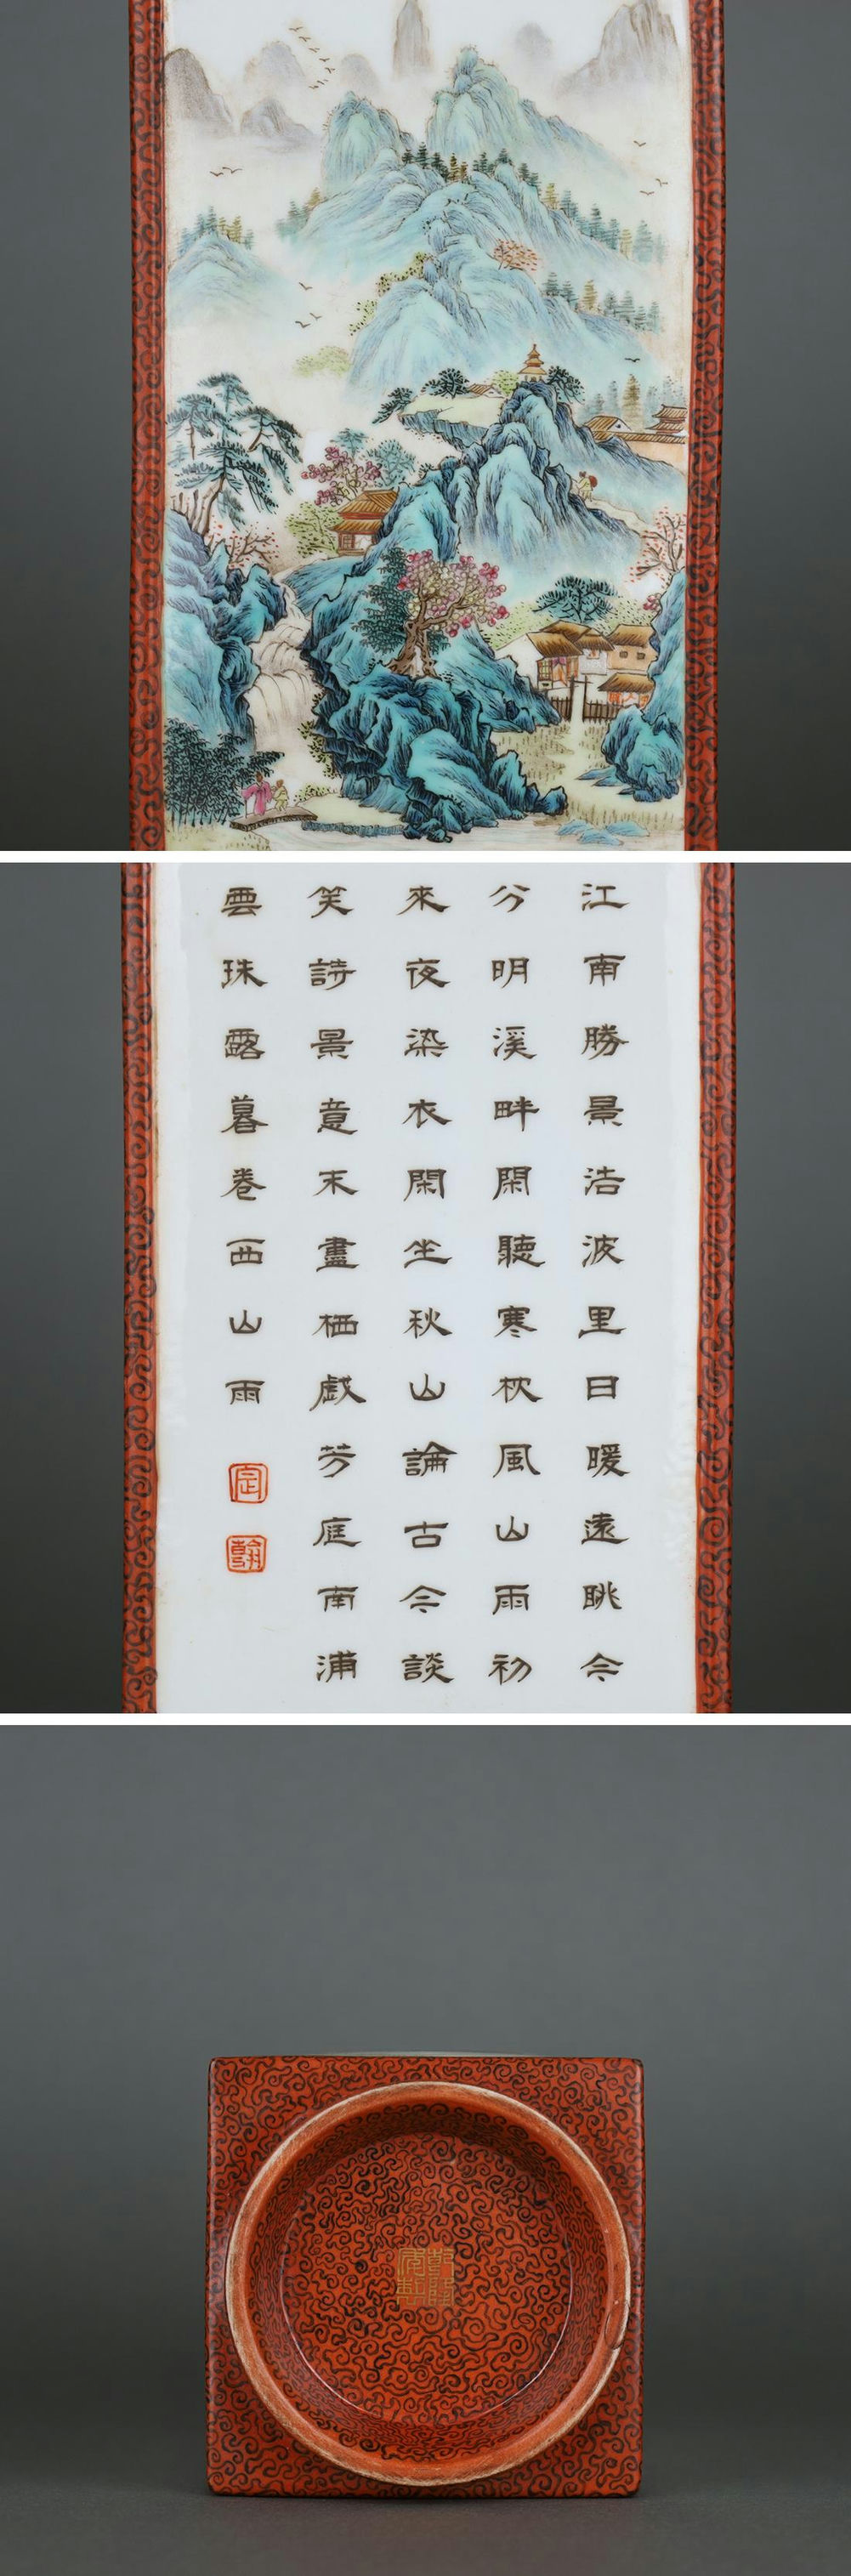 江南勝景浩波里日暖遠眺今
分明溪畔閑聽寒枕風山雨初
來夜染衣閑坐秋山論古今談
笑詩景意末盡栖戯芳庭南浦
雲珠露暮卷西山雨
翰
乾隆年製